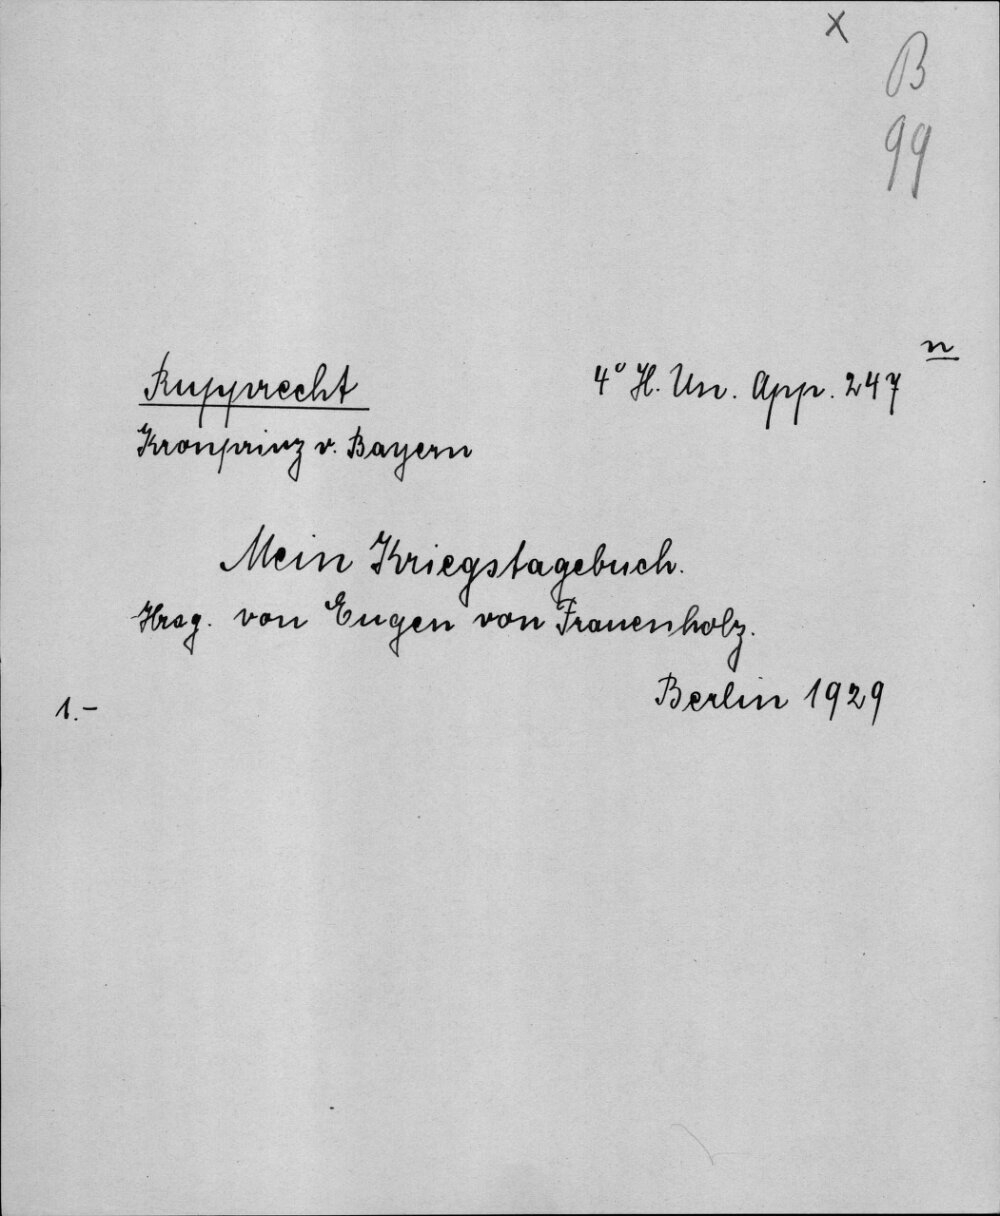 x
B
99
n
Rupprecht 4° H. Un. App. 247
Kronprinz v. Bayern
Mein Kriegstagebuch.
Hrsg. von Eugen von Frauenholz.
Berlin 1929
1.-